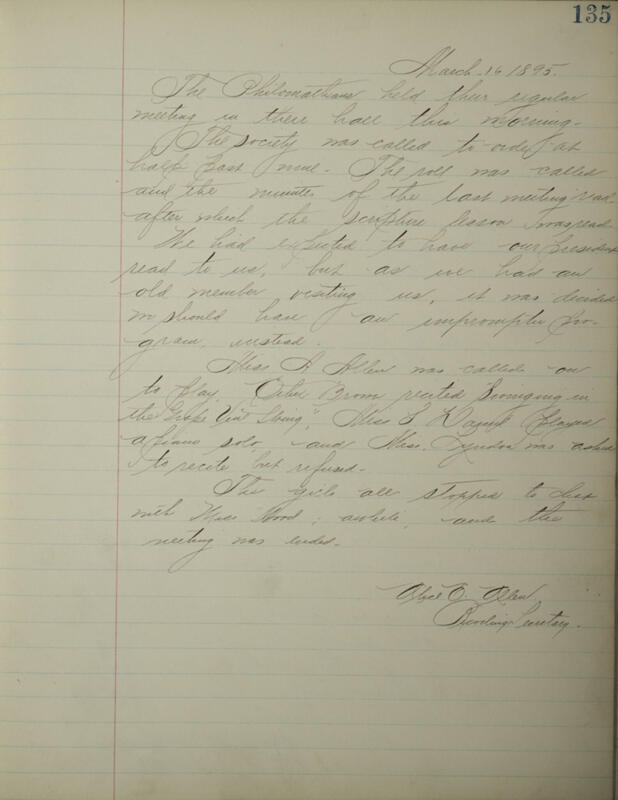 135
March. 16 1895.
The Philomatheans held their regular
meeting in their hall this morning.
The society was called to order at
half past nine. The roll was called
and the minutes of the last meeting read
after which the scripture lesson was read
We had expected to have our President
read to us, but as we had an
old member visiting us, it was decided
we should have an impromptu pro-
gram, instead.
Miss A Allen was called on
to play. Brown recited "Swinging in
the Grape Vine Swing", Miss S played
a piano solo and Miss Lyndon was asked
to recite but refused.
The girls all stopped to
with Miss Wood awhile, and the
meeting was ended.
Allen
Recording Secretary.